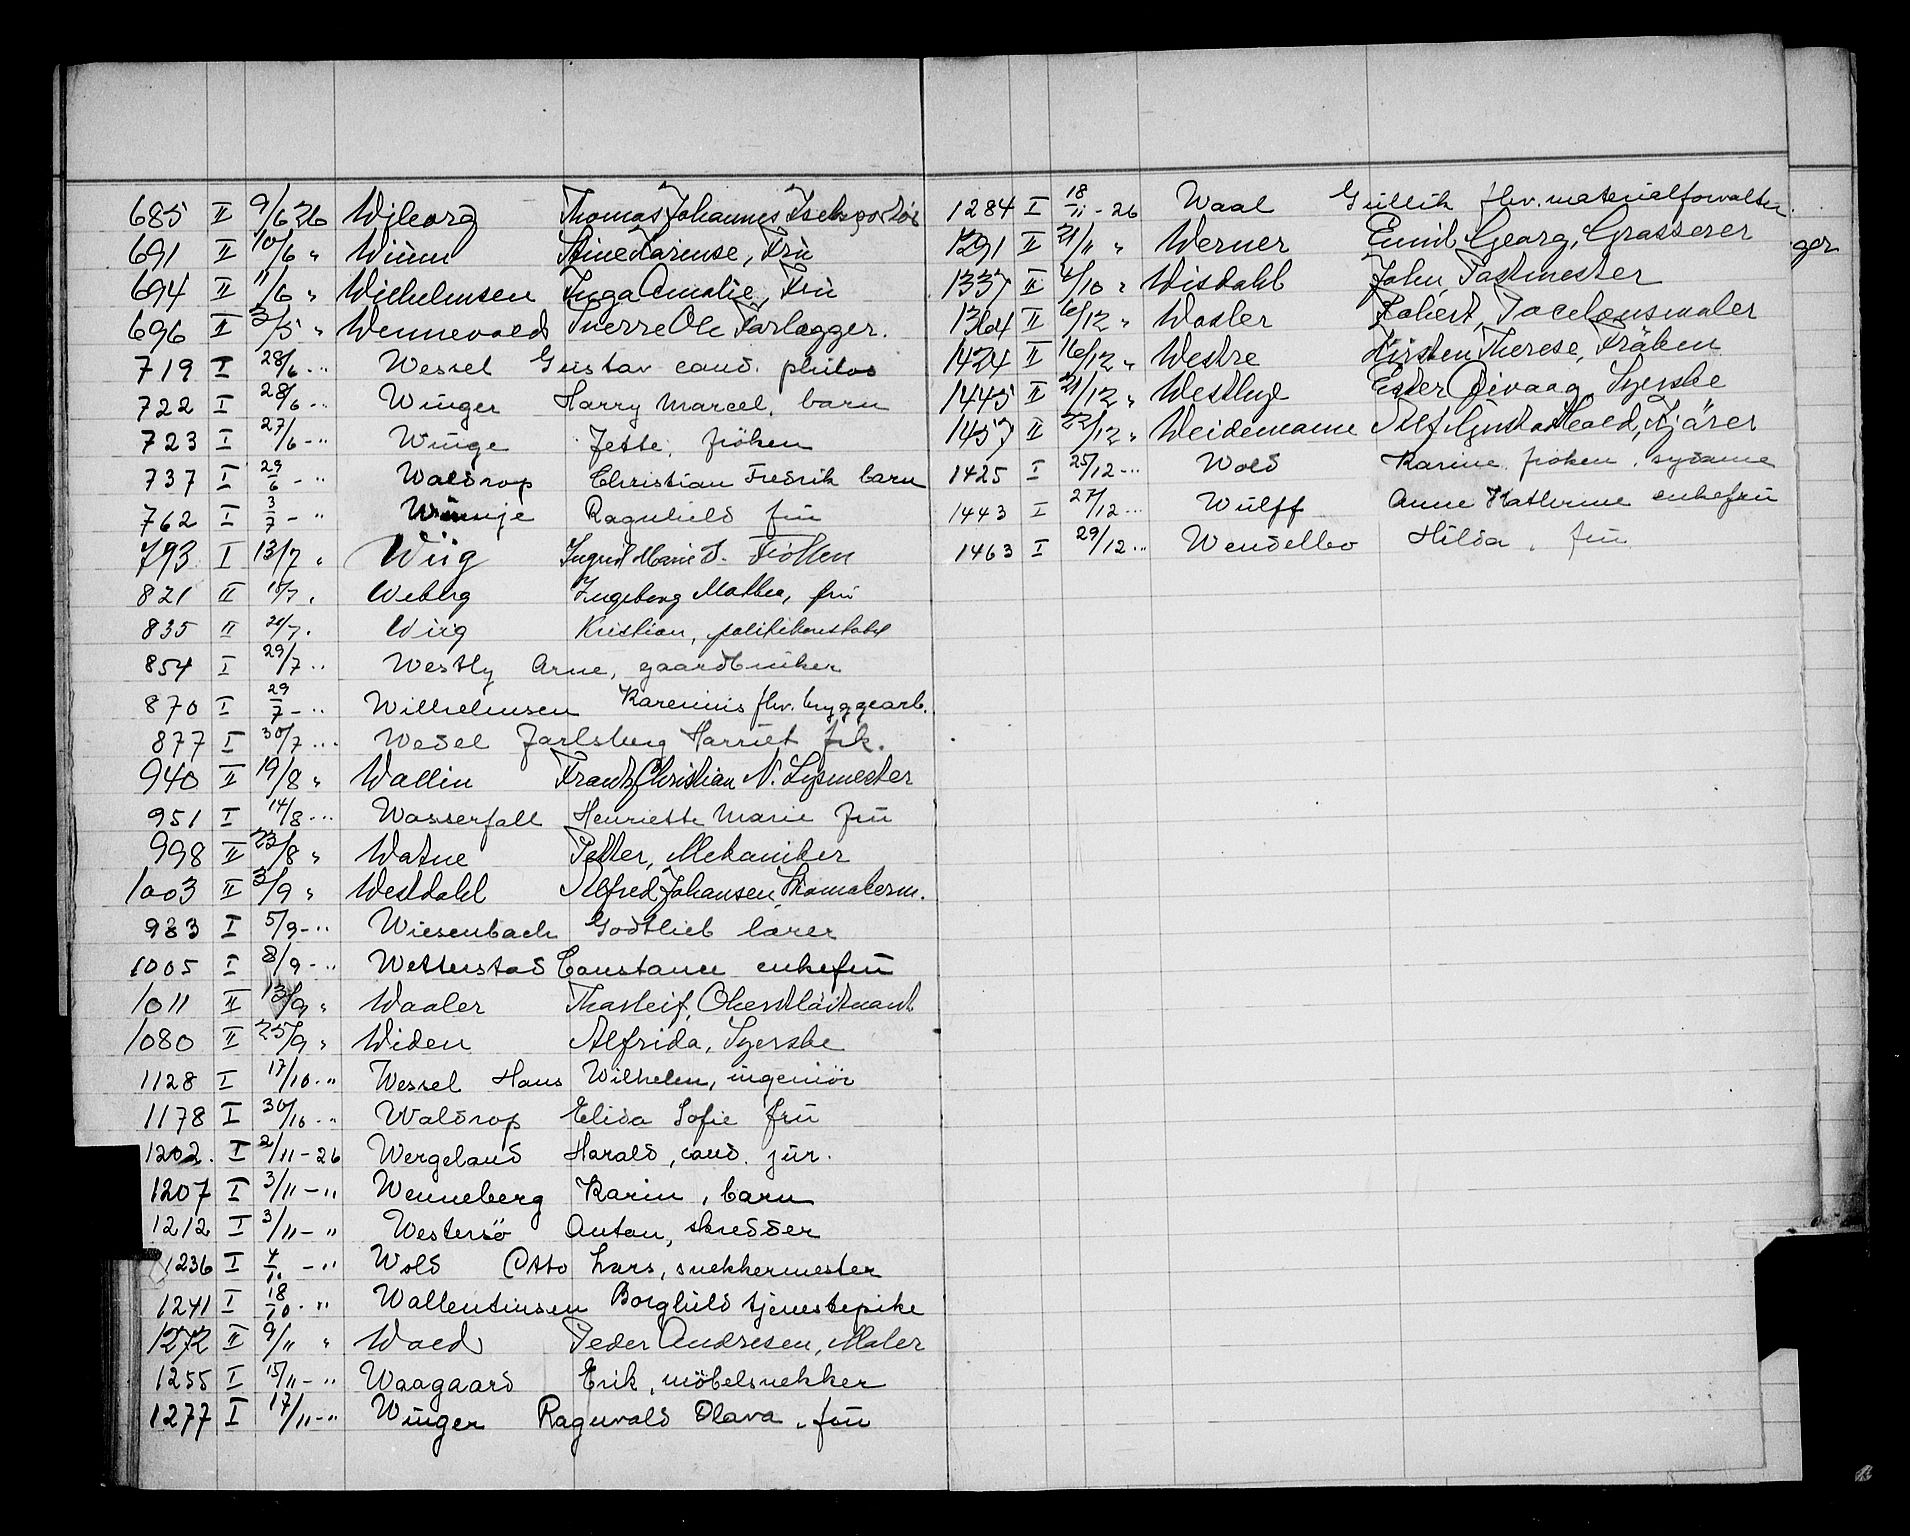 685 II 9/6 26 Wiborg Thomas Johannes Inspektör
691 II 10/6 " Wium Stine Karense, Fru
694 II 11/6 " Wilhelmsen Inga Amalie, Fru
696 II 3/5 " Wennevold Sverre Ole Forlægger.
719 I 28/6 - " Wessel Gustav cand. philos
722 I 28/6 - " Winger Harry Marcel, barn
723 I 27/6 - " Winge Jette, fröken
737 I 29/6 - " Waldrop Christian Fredrik barn
762 I 3/7 - " Winnje Ragnhild fru
793 I 13/7 " Wiig Ingrid Marie S. Fröken
821 II 15/7 " Weberg Ingeborg Mathea, fru
835 II 20/7 " Wiig Kristian, politikonstabel
854 I 29/7 " Westly Arne, gaardbruker
870 I 29/7 - " Wilhelmsen Karenius fhv. bryggearb.
877 I 30/7 " Wedel Jarlsberg Harriet frk.
940 II 19/8 " Wallin Frantz Christian N. Lysmester
951 I 14/8 - " Wasserfall Henriette Marie fru
998 II 23/8 " Watne Petter, Mekaniker
1003 II 3/9 " Westdahl Alfred Johansen, Skomakerm.
983 I 5/9 - " Wiesenbach Godtlieb lærer
1005 I 8/9 - " Wetterstad Constance enkefru
1011 II 13/9 " Waaler Thorleif, Oberstlöitnant
1080 II 25/9 " Widen Alfrida, Syerske
1128 I 17/10 - " Wessel Hans Wilhelm, ingeniör
1178 I 30/10 - " Waldrop Elida Sofie fru
1202. I 2/11 - 26 Wergeland Harald, cand. jur.
1207 I 3/11 - " Wenneberg Karin, barn
1212 I 3/11 - " Westersö Anton, skredder
1236 I 4/10 - " Wold Otto Lars, snekkermester
1241 I 18/10 - " Wallentinsen Borghild tjenestepike
1272 II 9/11 " Wold Peder Andresen, Maler
1255 I 15/11 - " Waagaard Erik, möbelsnekker
1277 I 17/11 - " Winger Ragnvald Olava, fru
1284 I 18/11 - 26 Waal Gullik fhv. materialforvalter.
1291 II 21/11 " Werner Emil Georg, Grosserer
1337 II 4/10 " Wisdahl John, Postmester
1364 II 6/12 " Wosler Robert, Porcelænsmaler
1424 II 16/12 " Westre Kirsten Therese, Fröken
1445 II 21/12 " Westbye Ester Divaag, Syerske
1457 II 22/12 " Weidemann Alf Gustav Hoald, Kjörer
1425 I 25/12 - " Wold Karine fröken, sydame
1443 I 27/12 - " Wulff Anne Kathrine enkefru
1463 I 29/12 - " Wendelbo Hilda, fru
ger